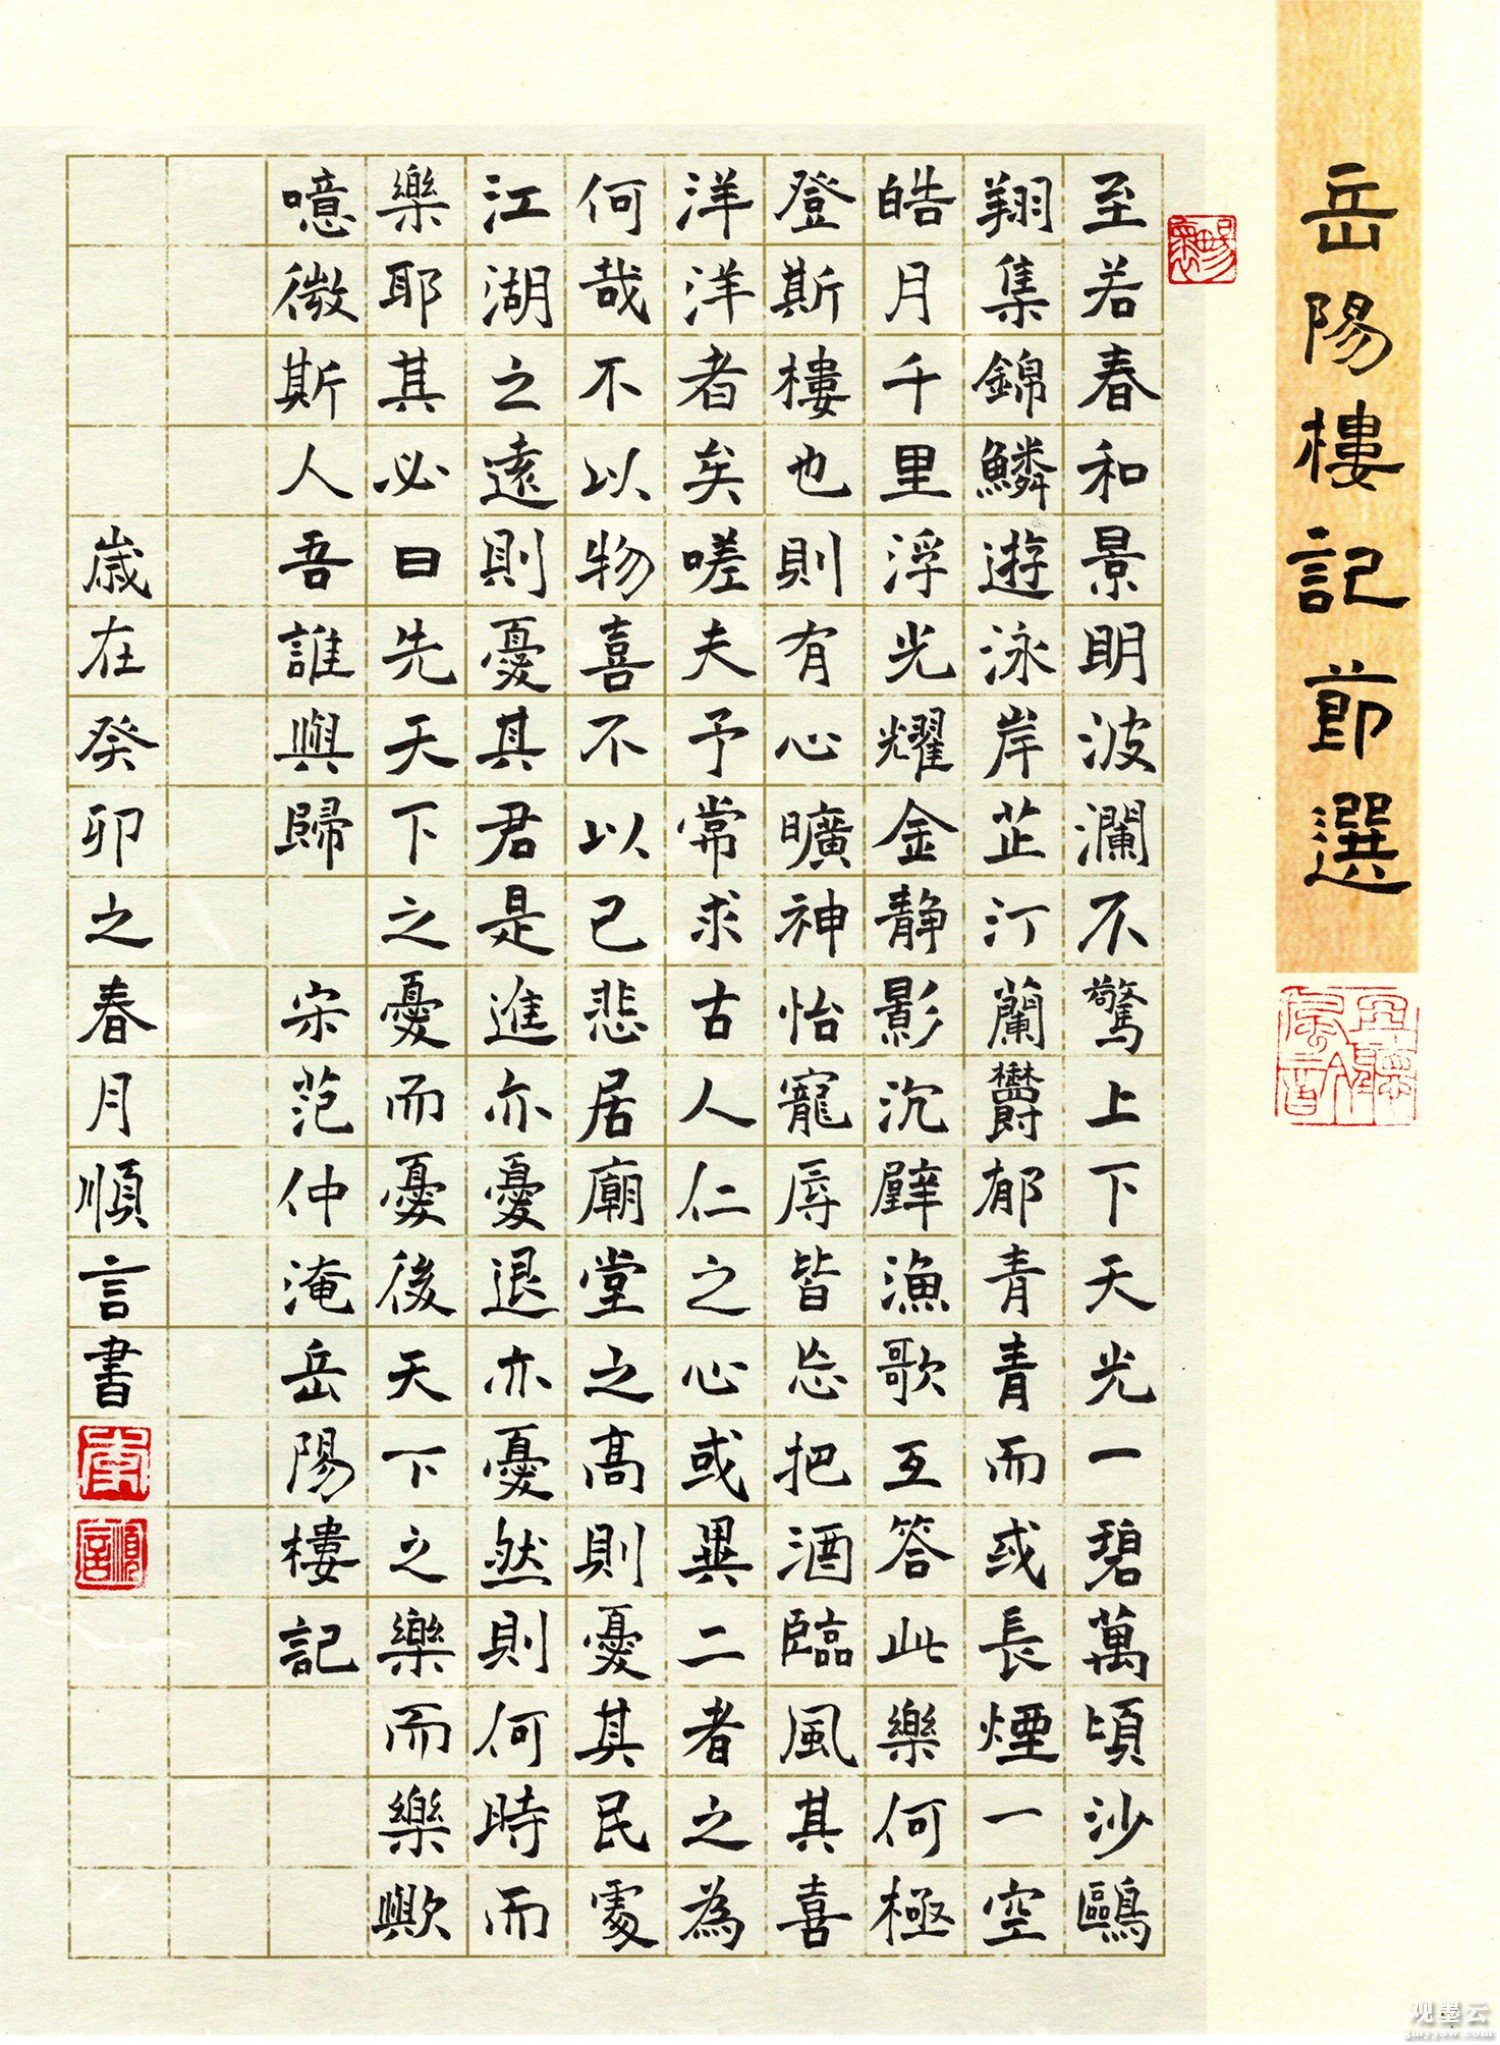 岳陽樓記節選
至若春和景明波瀾不驚上下天光一碧萬頃沙鷗
翔集錦鱗遊泳岸芷汀蘭欝郁青青而或長煙一空
皓月千里浮光耀金静影沉璧漁歌互答此樂何極
登斯樓也則有心曠神怡寵辱皆忘把酒臨風其喜
洋洋者矣嗟夫予常求古人仁之心或異二者之為
何哉不以物喜不以己悲居廟堂之高則憂其民處
江湖之遠則憂其君是進亦憂退亦憂然則何時而
樂耶其必曰先天下之憂而憂後天下之樂而樂歟
噫微斯人吾誰與歸 宋范仲淹岳陽樓記
歲在癸卯之春月順言書
順言
观墨云